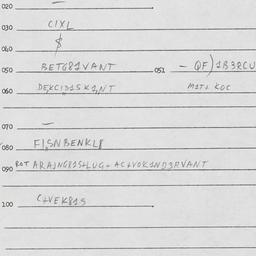 020 —
030 C/XL
040 $
050 BETG81VANT 051 — QF)1B3RCU
060 DEKCID1SK1,NT M1T1 KOC
070 —
080 FI,SNBENKL8
090 ROT ARA1NG81S+LUG+ AC+VOK1ND3RVANT
100 C+VEK81S